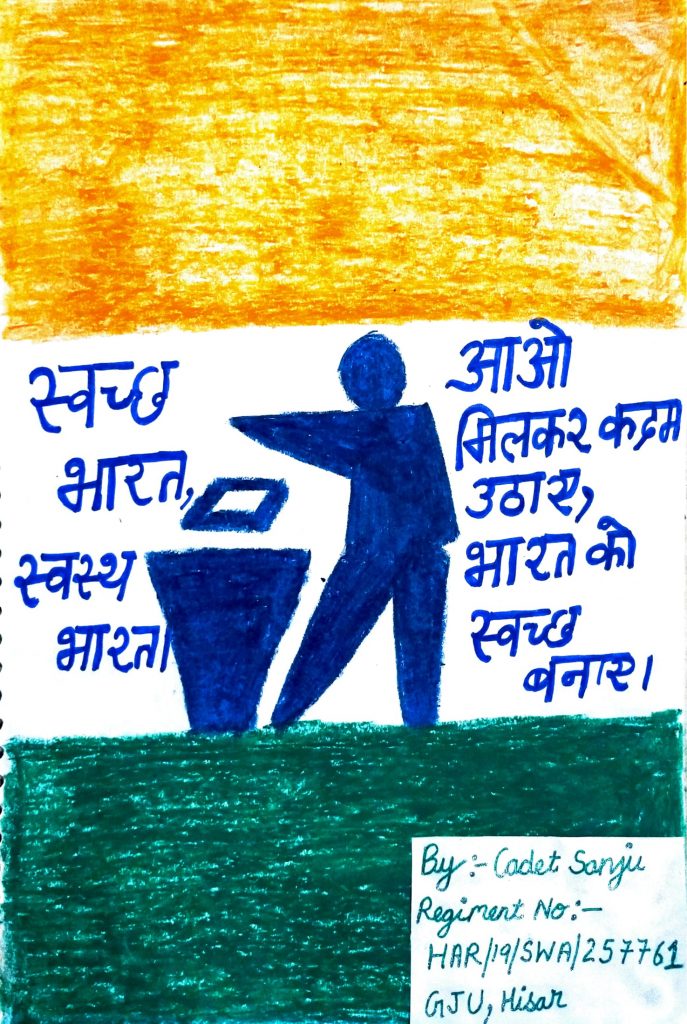 स्वच्छ
भारत,
स्वस्थ
भारत।
आओ
मिलकर कदम
उठाए,
भारत को
स्वच्छ
बनाए।
By:- Cadet Sanju
Regiment No:-
HAR/19/SWA/257761
GJU, Hisar